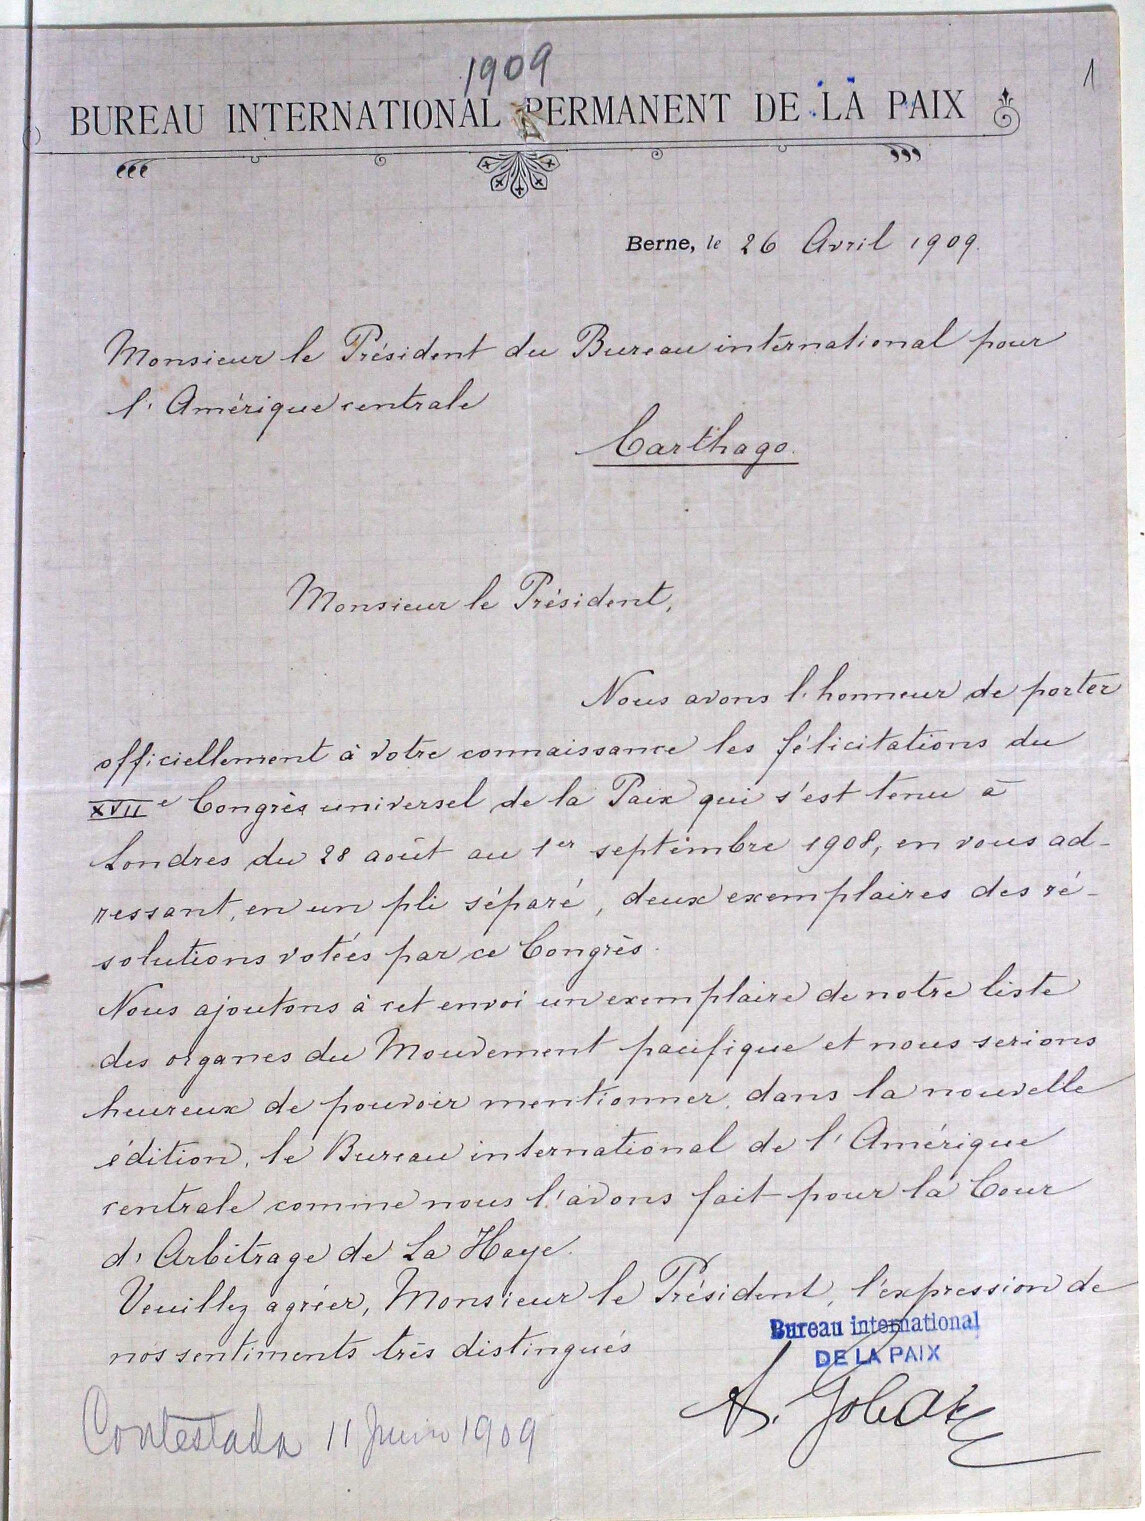 1909
1
BUREAU INTERNATIONAL PERMANENT DE LA PAIX
Berne, le 26 Avril 1909.
Monsieur le Président du Bureau international pour
l'Amérique centrale
Carthago.
Monsieur le Président,
Nous avons l'honneur de porter
officiellement à votre connaissance les félicitations du
XVIIe Congrès universel de la Paix qui s'est tenu à
Londres du 28 août au 1er septembre 1908, en vous ad-
ressant, en un pli séparé, deux exemplaires des ré-
solutions votées par ce Congrès.
Nous ajoutons à cet envoi un exemplaire de notre liste
des organes du Mouvement pacifique et nous serions
heureux de pouvoir mentionner, dans la nouvelle
édition, le Bureau international de l'Amérique
centrale comme nous l'avons fait pour la Cour
d'Arbitrage de La Haye.
Veuillez agréer, Monsieur le Président, l'expression de
nos sentiments très distingués
Bureau international
DE LA PAIX
A. Gobat
Contestada 11 Junio 1909